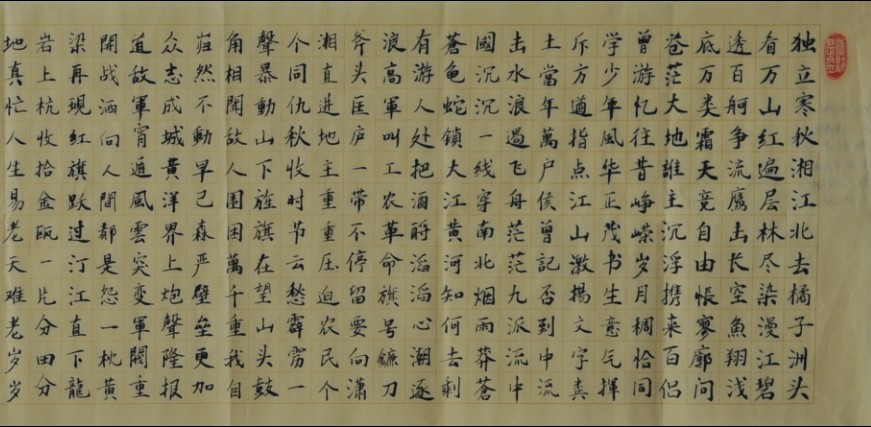 独立寒秋湘江北去橘子洲头
看万山红遍层林尽染漫江碧
透百舸争流鹰击长空魚翔浅
底万类霜天竞自由怅寥廓问
苍茫大地誰主沉浮携来百侣
曾游忆往昔峥嵘岁月稠恰同
学少年風华正茂书生意气挥
斥方遒指点江山激揚文字粪
土當年萬户侯曾記否到中流
击水浪遏飞舟茫茫九派流中
國沉沉一线穿南北烟雨莽苍
蒼龟蛇鎖大江黄河知何去剩
有游人处把酒酹滔滔心潮逐
浪高軍叫工农革命旗号鐮刀
斧头匡庐一带不停留要向潇
湘直進地主重重压迫农民个
个同仇秋收时节云愁霹雳一
聲暴動山下旌旗在望山头鼓
角相聞敌人围困萬千重我自
岿然不動早已森严壁垒更加
众志成城黄洋界上炮聲隆报
道敌軍宵遁風雲突变軍閥重
開战洒向人間都是怨一枕黄
梁再現红旗跃过汀江直下龍
岩上杭收拾金瓯一片分田分
地真忙人生易老天难老岁岁